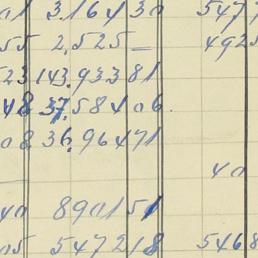 01 3.164 30 547
55 2,525 — 4925
23 143.933 81
48 37.584 06.
08 36.964 71
40
40 8901 51
05 5472 18 5468